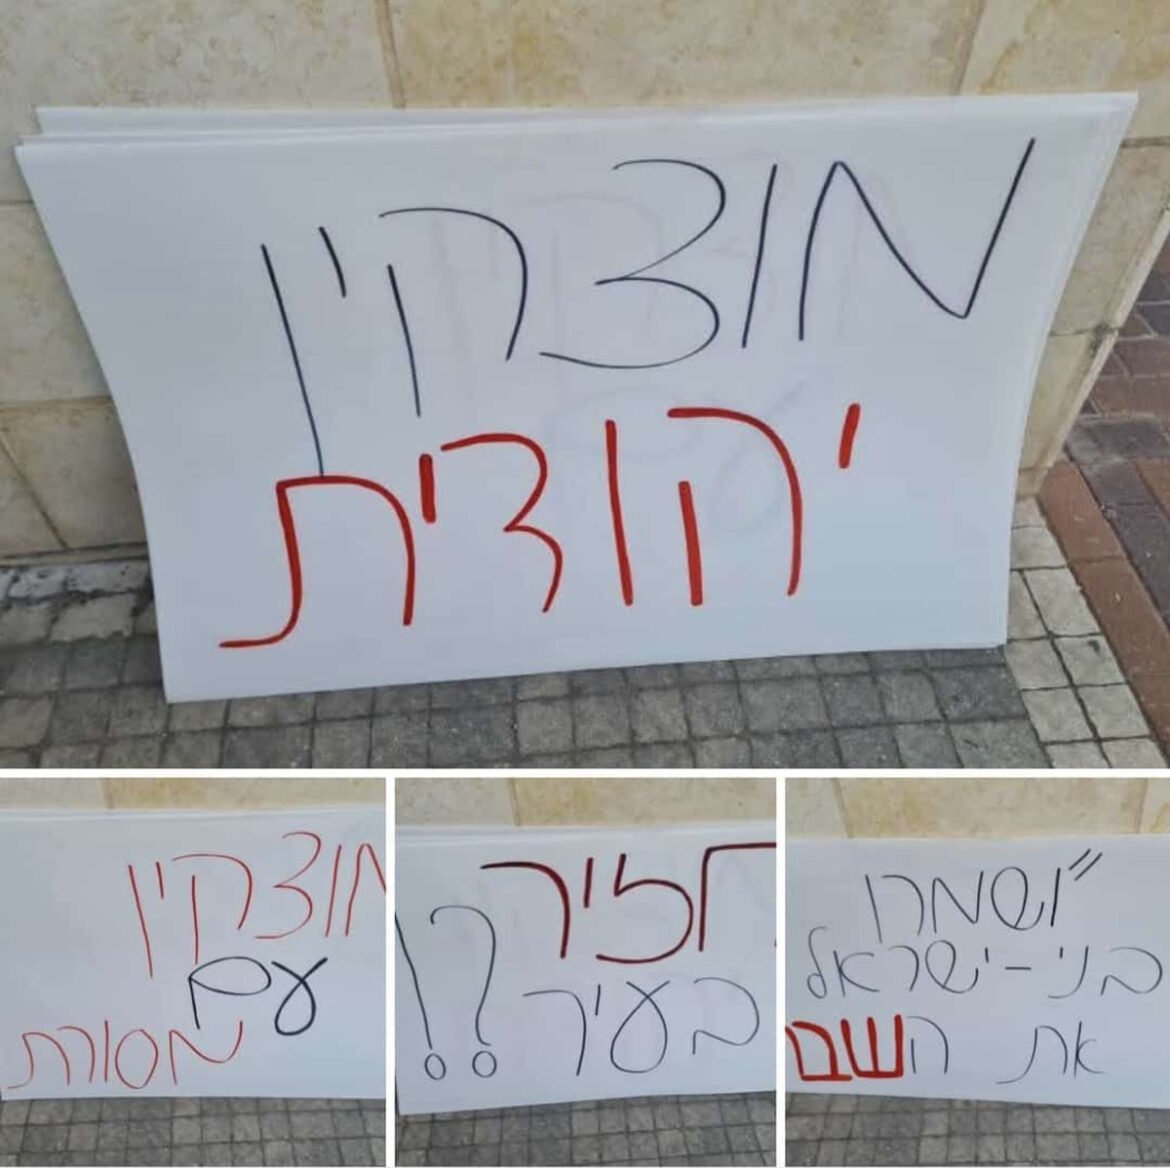 מוצקין
יהודית
מוצקין
עם
מסורת
חזיר
בעיר
?!
"ושמרו
בני-ישראל
את השב